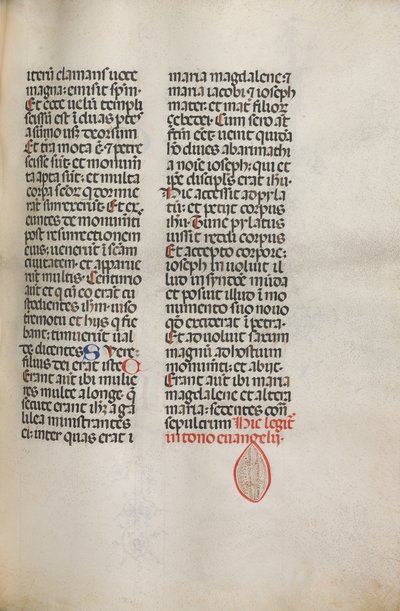 iterū clamans uoce
magna: emisit sp̄m.
Et ecce uelū templi
scissū est ī duas ptes
a sūmo usq̨ deorsum
Et tr̄a mota ē: ⁊ petre
scisse sūt: et monum̄
ta apta sūt: et multa
corpa sc̄or̨ q̇ dormie
rāt surrexerūt. Et ex
euntes de monum̄tī
post resurrectionem
eius: uenerūt ī sc̄am
ciuitatem: et apparue
rūt multis. Centurio
aut̄ et q̇ cū eo erāt cu
stodientes ihm̄. uiso
tremotu et hijs q̄ fie
bant: timuerūt ual
de dicentes S Vere
filius dei erat iste C
Erant aut̄ ibi mulie
res multe a longe. q̄
secute erant ihm̄ a ga
lilea ministrantes
ei: inter quas erat
maria magdalene: ⁊
maria iacobi ⁊ ioseph
mater: et mat̄ filior̨
çebedei. Cum sero aūt
fc̄m eēt: uenit quidā
hō diues abarimathi
a noīe ioseph: qui et
ip̄e discipl̄s erat ihū.
Hic accessit ad pyla
tū: et petijt corpus
ihū. Tunc pylatus
iussit reddi corpus
Et accepto corpore:
ioseph inuoluit il
lud in sȳdōe mūda
et posuit illud ī mo
numento suo nouo
qd̄ exciderat ī petra.
Et aduoluit saxum
magnū ad hostium
monum̄ti: et abijt.
Erant aut̄ ibi maria
magdalene et altera
maria: sedentes cont̄
sepulcrum Hic legit̄
in tono euangelij.